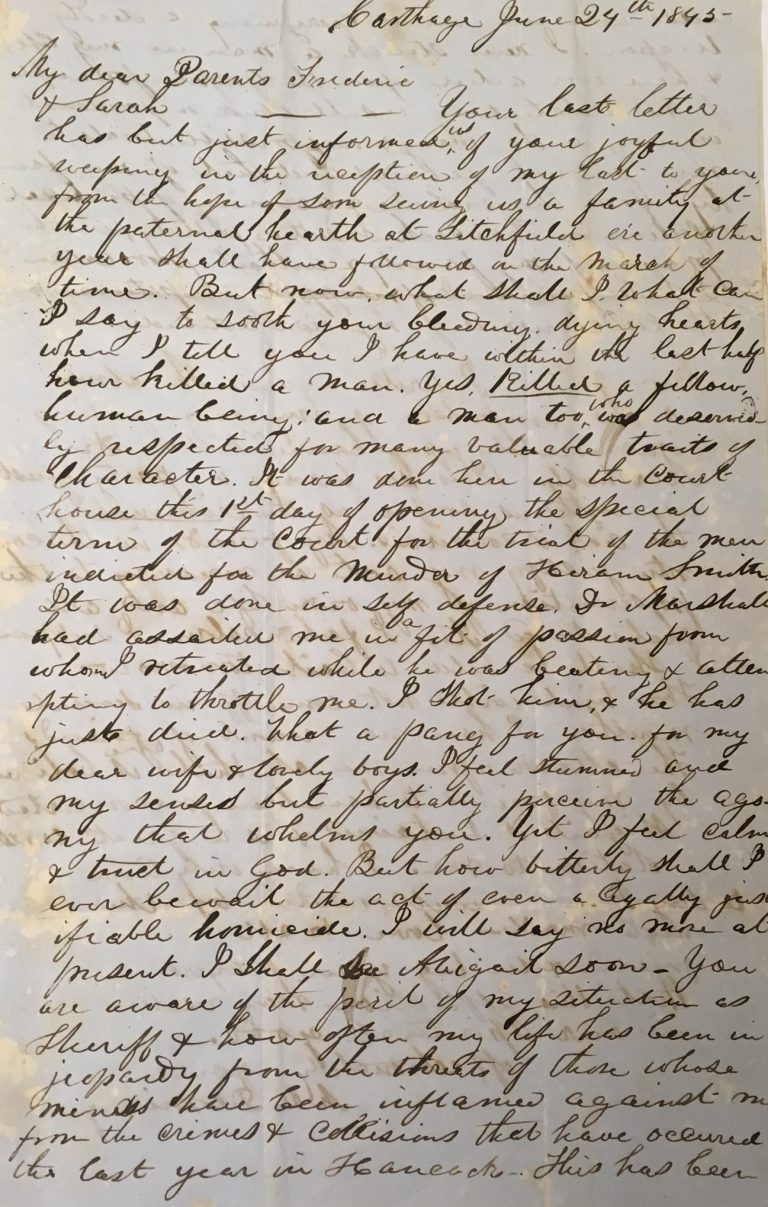 Carthage June 24th 1845-
My dear Parents Frederic
& Sarah — — Your last letter
has but just informed us of your joyful
weeping in the reception of my last to you,
from the hope of soon seeing us a family at
the paternal hearth at Litchfield ere another
year shall have followed in the march of
time. But now, what shall I, what can
I say to sooth your bleeding, dying hearts,
when I tell you I have within the last half
hour killed a man. Yes, Killed a fellow
human being; and a man too, who was deserved
ly respected for many valuable traits of
Character. It was done here in the Court
house this 1st day of opening the special
term of the Court for the trial of the men
indicted for the Murder of Hiram Smith.
It was done in self defense. Dr Marshall
had assailed me in a fit of passion from
whom I retreated while he was beating & attem
pting to throttle me. I Shot him, & he has
just died. What a pang for you. for my
dear wife & lovely boys. I feel stunned and
my senses but partially perceive the ago-
ny that whelms you. Yet I feel calm
& trust in God. But how bitterly shall I
ever bewail the act of even a legally just
ifiable homicide. I will say no more at
present. I Shall see Abigail soon - You
are aware of the peril of my situation as
Sheriff & how often my life has been in
jeopardy from the threats of those whose
minds have been inflamed against me
from the crimes & Collisions that have occured
the last year in Hancock -. This has been